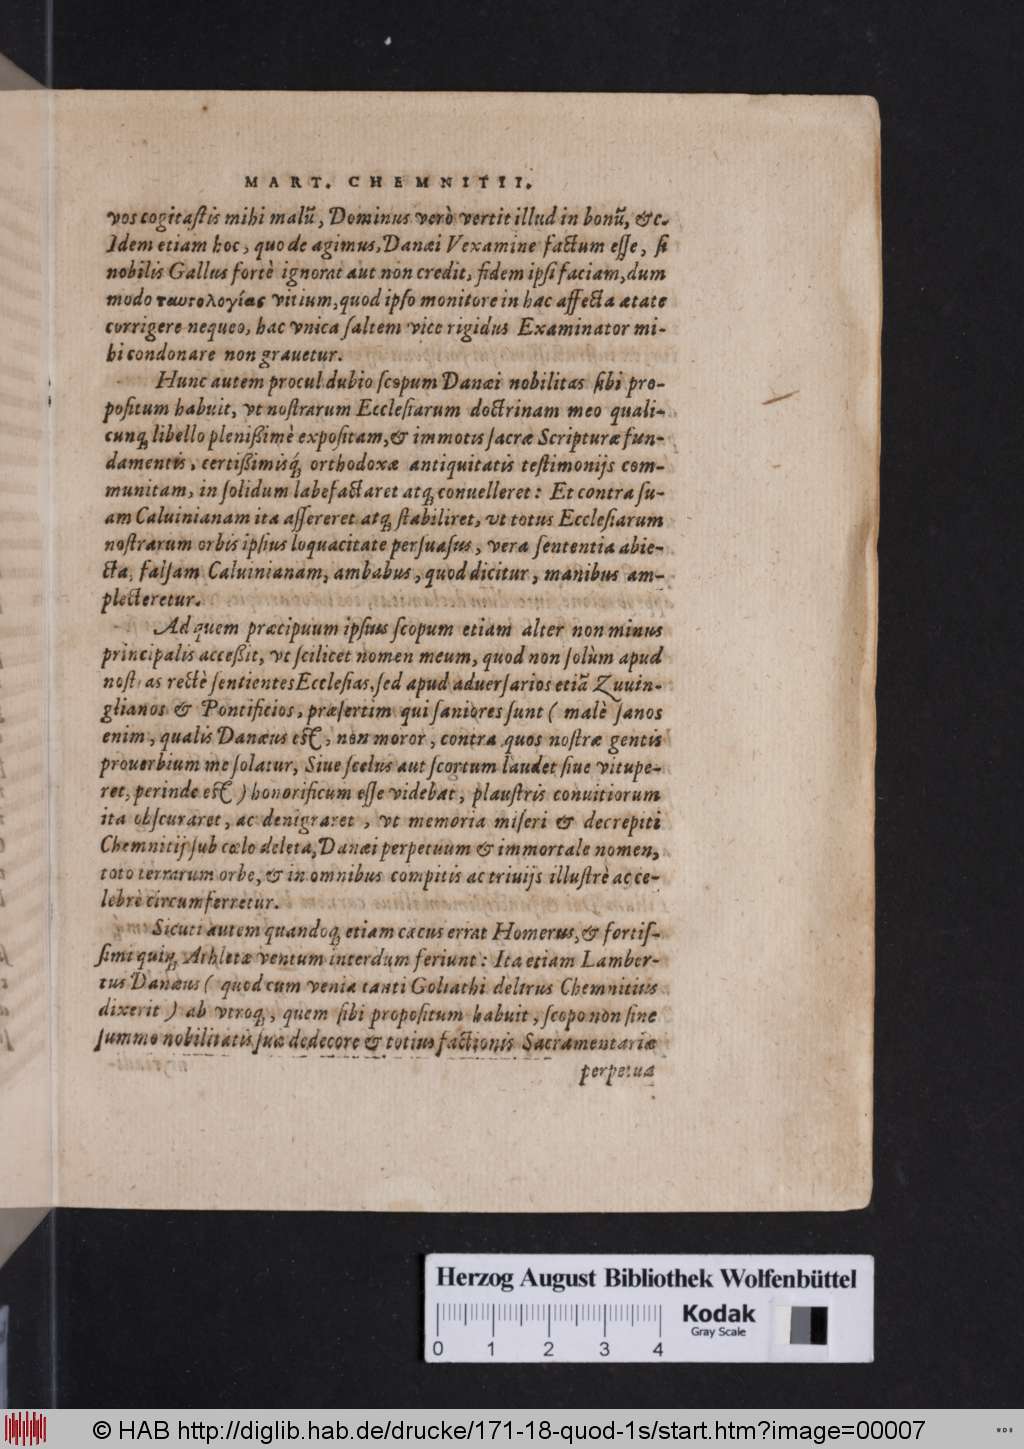 MART. CHEMNITII.
vos cogitaſtis mihi malū, Dominus verò vertit illud in bonū, &c.
Idem etiam hoc, quo de agimus, Danæi Vexamine factum eſſe, ſi
nobilis Gallus fortè ignorat aut non credit, fidem ipſi faciam, dum
modo ταυτολογίας vitium, quod ipſo monitore in hac affecta ætate
corrigere nequeo, hac vnica ſaltem vice rigidus Examinator mi-
hi condonare non grauetur.
Hunc autem procul dubio ſcopum Danæi nobilitas ſibi pro-
poſitum habuit, vt noſtrarum Eccleſiarum doctrinam meo quali-
cunq; libello pleniſſimè expoſitam, & immotis ſacræ Scripturæ fun-
damentis, certiſſimisq́; orthodoxæ antiquitatis teſtimonijs com-
munitam, in ſolidum labefactaret atq; conuelleret: Et contra ſu-
am Caluinianam ita aſſereret atq; ſtabiliret, vt totus Eccleſiarum
noſtrarum orbis ipſius loquacitate perſuaſus, vera ſententia abie-
cta, falſam Caluinianam, ambabus, quod dicitur, manibus am-
plecteretur.
Ad quem præcipuum ipſius ſcopum etiam alter non minus
principalis acceſſit, vt ſcilicet nomen meum, quod non ſolùm apud
noſtras rectè ſentientes Eccleſias, ſed apud aduerſarios etiā Zuuin-
glianos & Pontificios, præſertim qui ſaniores ſunt ( malè ſanos
enim, qualis Danæus eſt, non moror, contra quos noſtræ gentis
prouerbium me ſolatur, Siue ſcelus aut ſcortum laudet ſiue vitupe-
ret, perinde eſt ) honorificum eſſe videbat, plauſtris conuitiorum
ita obſcuraret, ac denigraret, vt memoria miſeri & decrepiti
Chemnitij ſub cœlo deleta, Danæi perpetuum & immortale nomen,
toto terrarum orbe, & in omnibus compitis ac triuijs illuſtrè ac ce-
lebrè circumferretur.
Sicuti autem quandoq; etiam cæcus errat Homerus, & fortiſ-
ſimi quiq; Athletæ ventum interdum feriunt: Ita etiam Lamber-
tus Danæus ( quod cum venia tanti Goliathi delirus Chemnitius
dixerit ) ab vtroq;, quem ſibi propoſitum habuit, ſcopo non ſine
ſummo nobilitatis ſuæ dedecore & totius factionis Sacramentariæ
perpetua
Herzog August Bibliothek Wolfenbüttel
Kodak
Gray Scale
0 1 2 3 4
© HAB http://diglib.hab.de/drucke/171-18-quod-1s/start.htm?image=00007